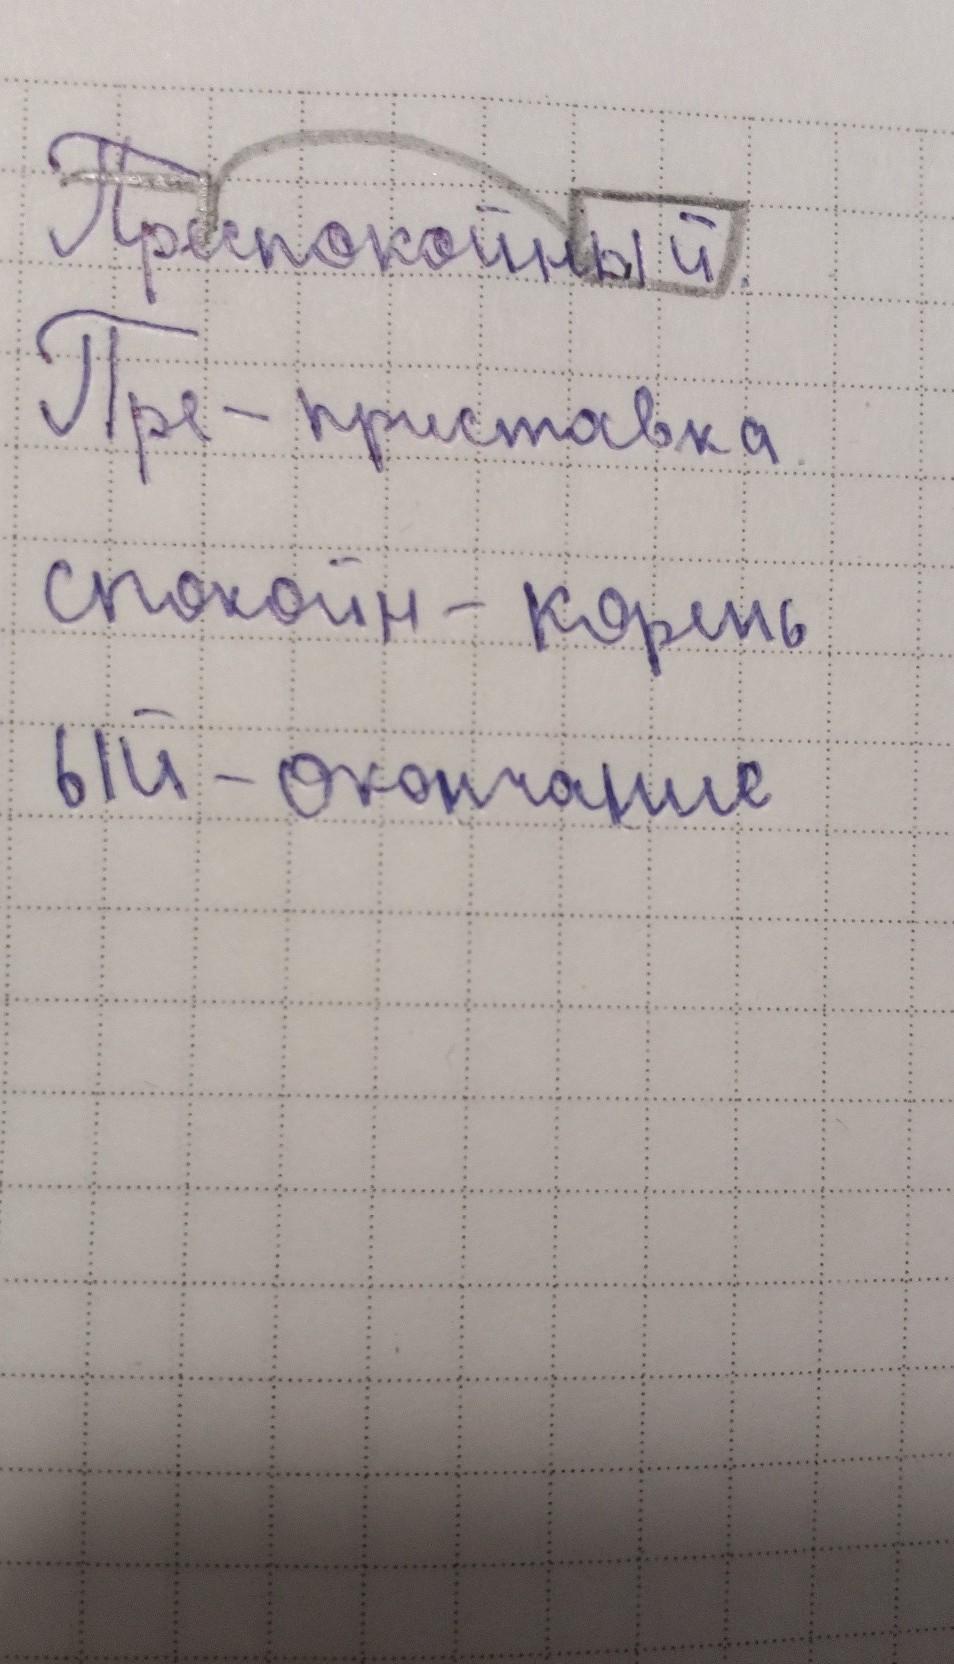 Преспокойный.
Пре - приставка.
спокойн - корень
ый - окончание